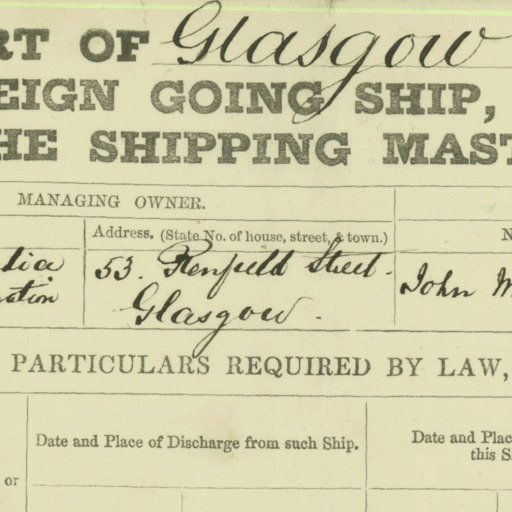 RT OF Glasgow
EIGN GOING SHIP,
HE SHIPPING MAST
MANAGING OWNER.
Address. (State No. of house, street, & town.)
N
53. Renfield Street.
John M
Glasgow.
PARTICULARS REQUIRED BY LAW,
Date and Place of Discharge from such Ship.
Date and Plac
this S
or